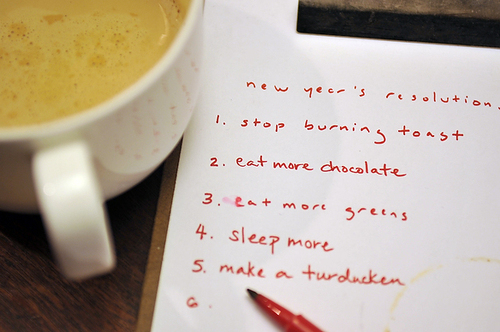 new year's resolution
1. stop burning toast
2. eat more chocolate
3. eat more greens
4. sleep more
5. make a turducken
6.